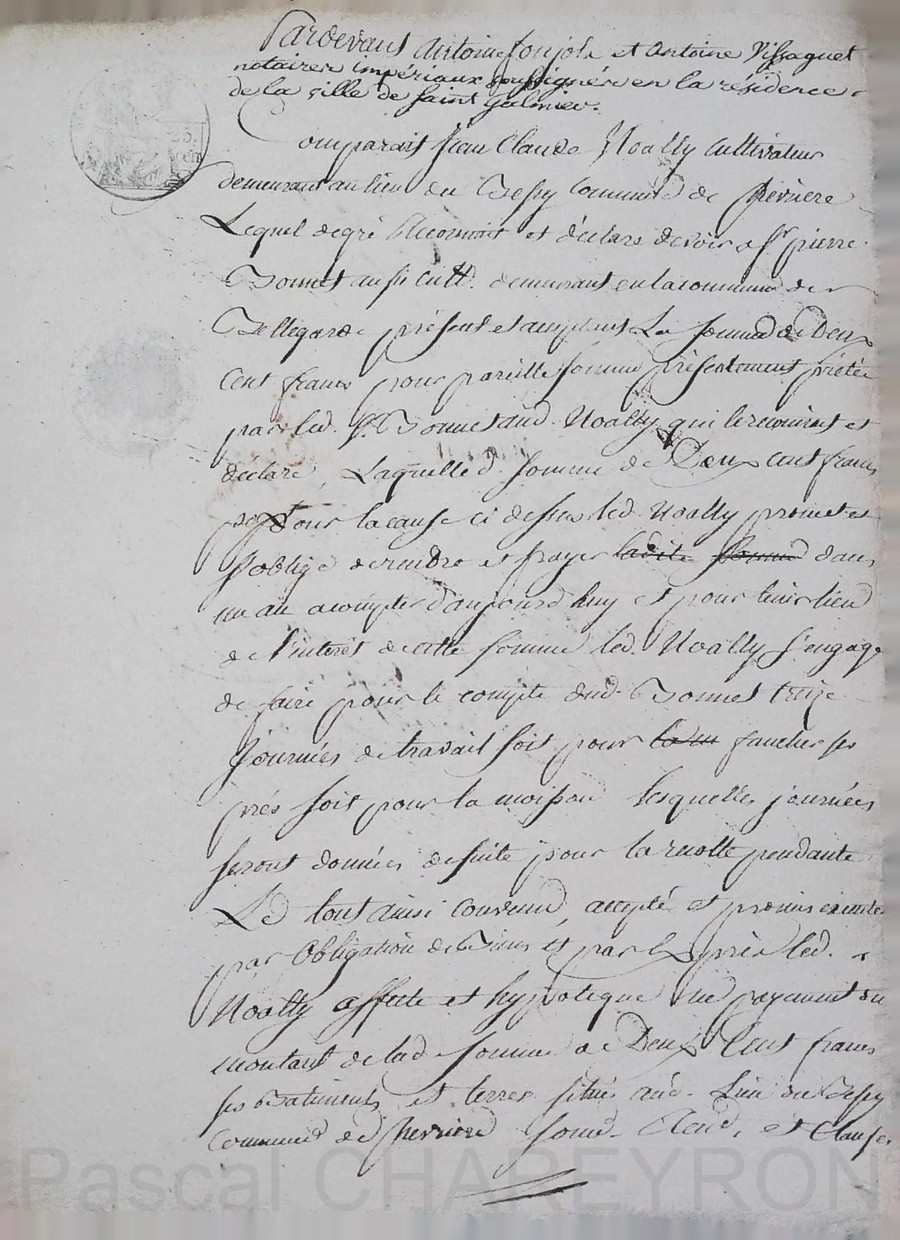 Pardevant Antoine Foujols et Antoine Vissaguet
notaires impériaux soussignés en la résidence
de la ville de Saint Galmier.
Comparait Jean Claude Noally Cultivateur
demeurant au lieu du Bessy Commune de
Lequel de gré Reconnoit et déclare devoir a Sr pierre
Bonnet aussi cult. demeurant en la commune de
Bellegarde présent et acceptant La somme de Deux
Cent francs pour pareille somme présentement prétée
par led. Sr. Bonnet aud. Noally qui le reconnoit et
déclare, Laquelle d. somme de Deux cent francs
pour la cause ci dessus led. Noally promet et
s'oblige de rendre et payer ladite somme dans
un an a compter d'aujourd'huy et pour tenir lieu
de l'interêt de cette somme led. Noally s'engage
de faire pour le compte dud. Bonnet treize
Journées de travail soit pour faucher ses
prés soit pour la moisson lesquelles journées
seront données de suite pour la recolte pendante
Le tout ainsi convenu, accepté et promis executer
par Obligation de Biens et par led.
Noally affecte et hypoteque au payement du
montant de lad. somme de Deux Cent francs
ses Batiments et terres situés aud. Lieu du Bessy
Commune de et Clauses.
Pascal CHAREYRON